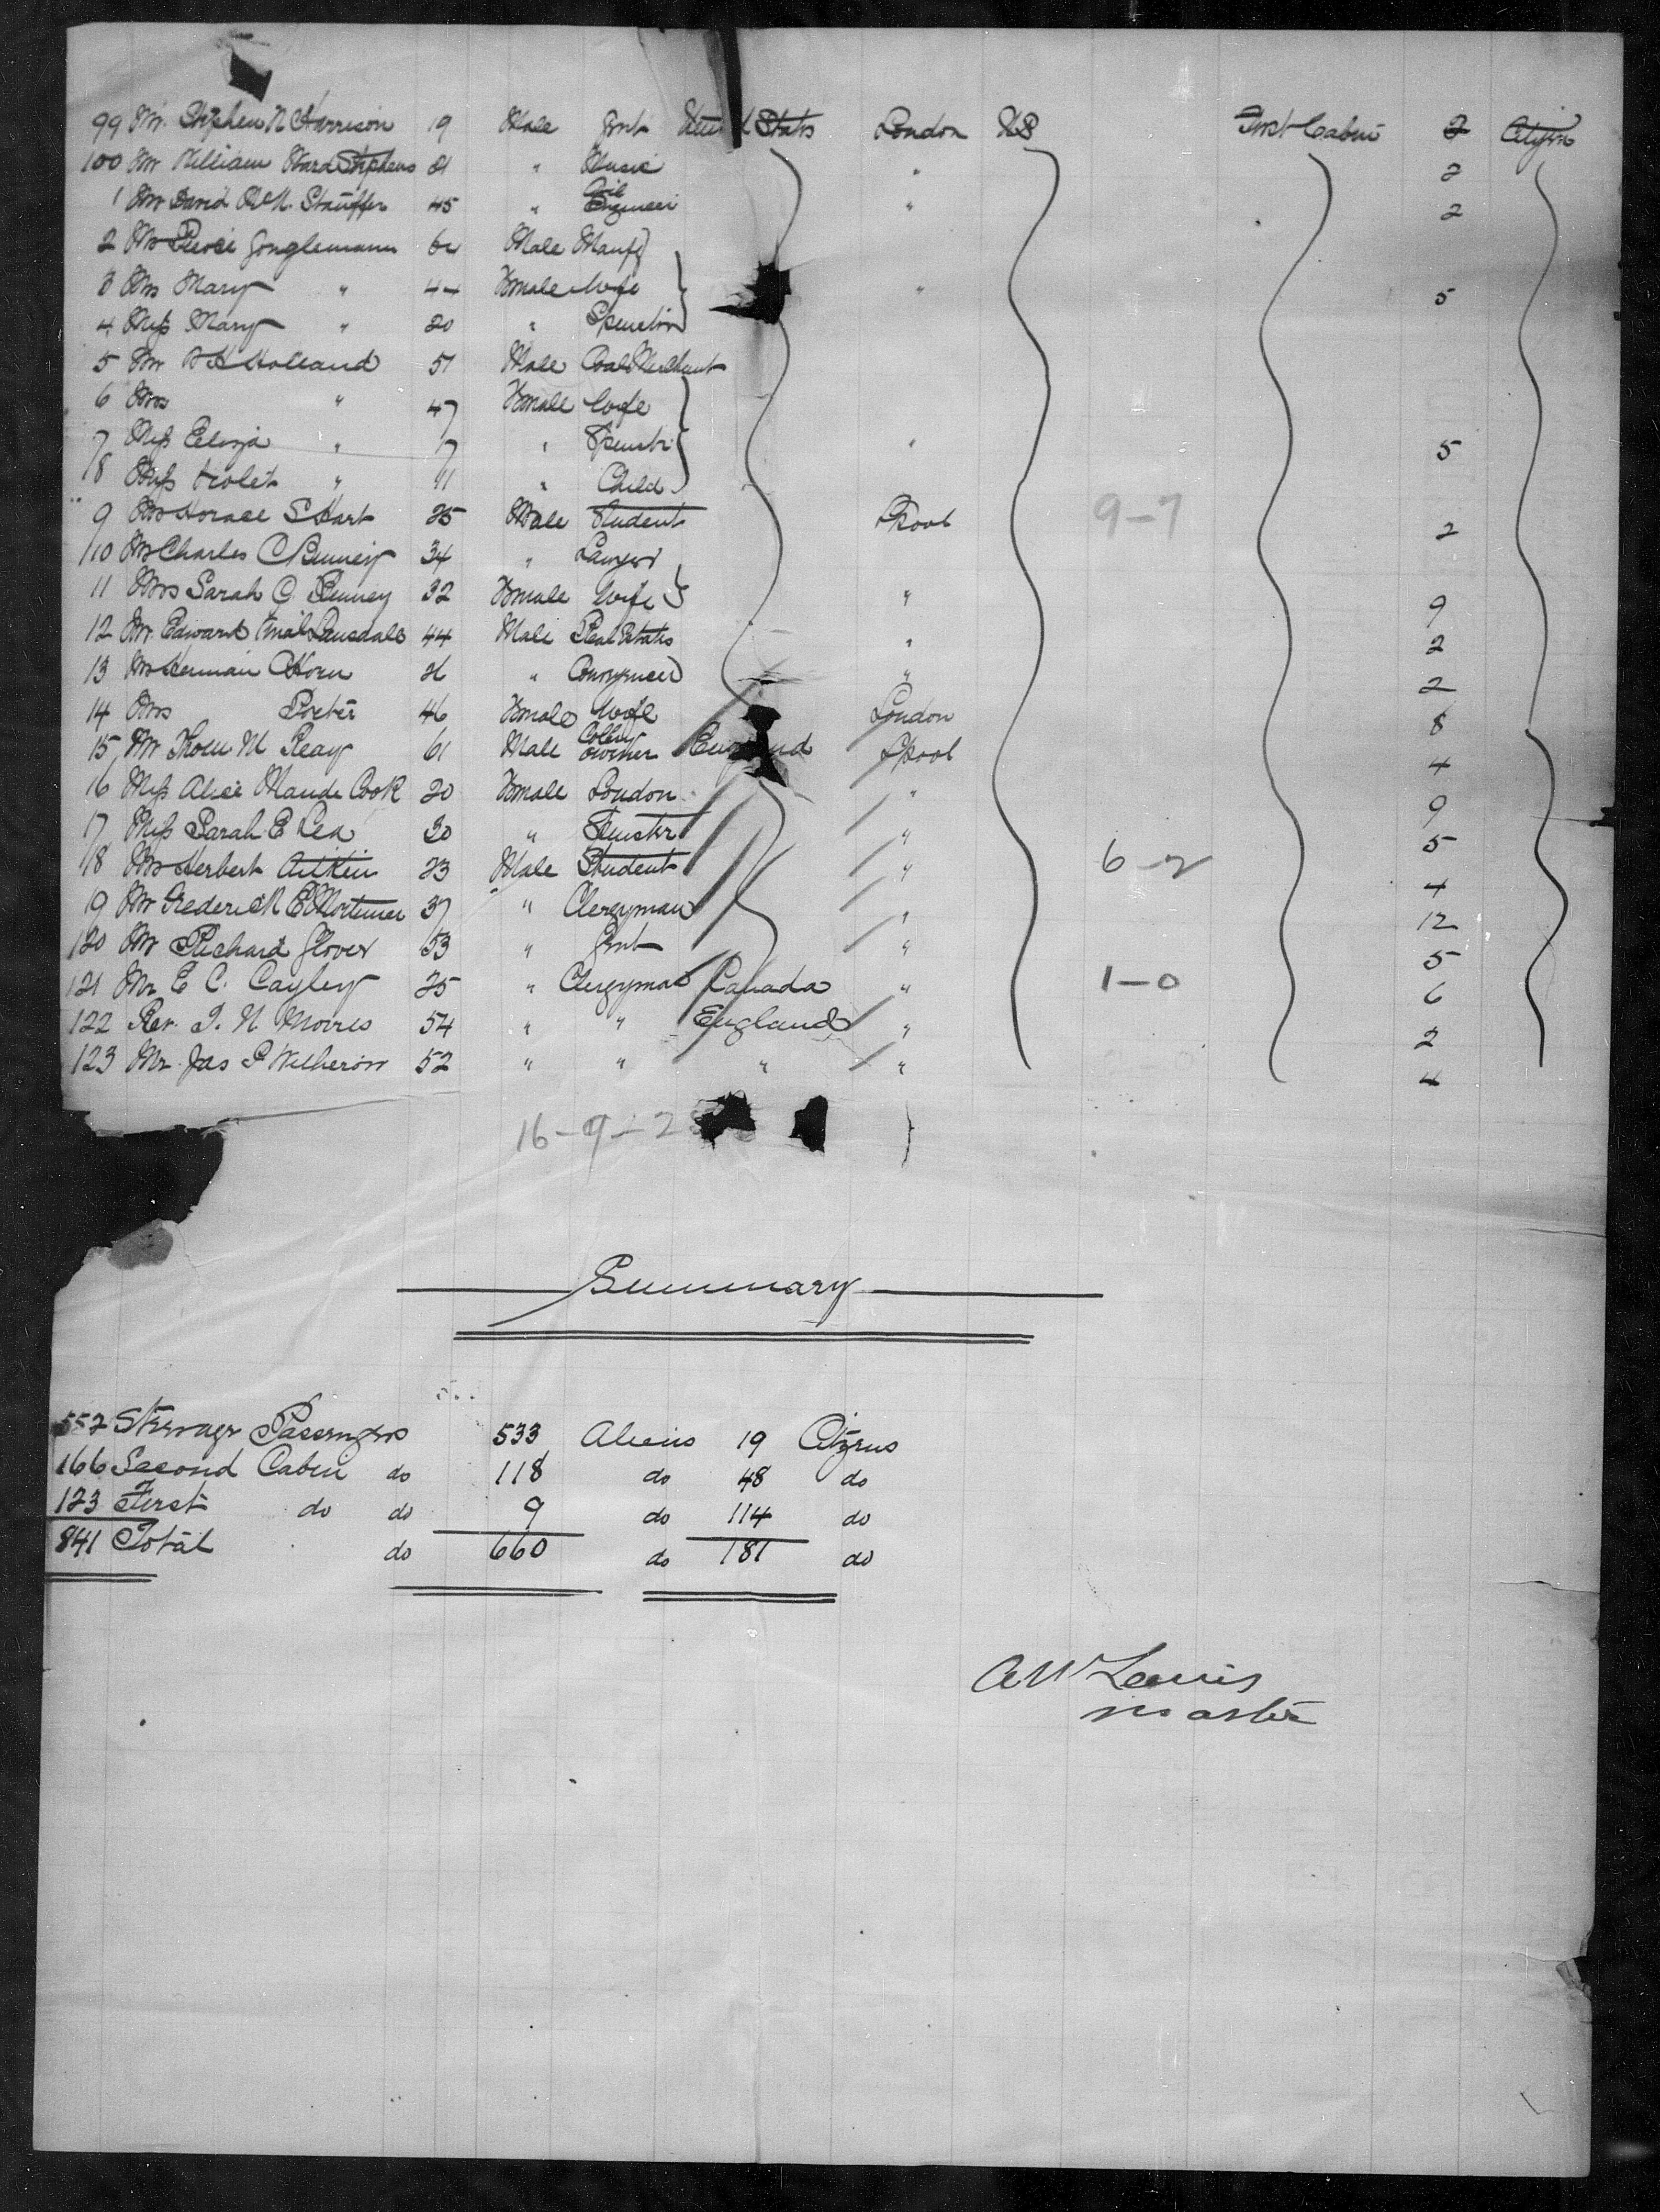 99 Mr. Stephen N Harrison 19 Male Gent United States London US First Cabin 2 Citizen
100 Mr William Ward Stephens 21 " Music " 2
1 Mr David McN. Stauffer 45 " Civil Engineer " 2
2 Mr Peirce Jonglemann 62 Male Manfr
3 Mrs Mary " 44 Female Wife " 5
4 Miss Mary " 20 " Spinster
5 Mr W H Holland 51 Male Coal Merchant
6 Mrs " 47 Female Wife
7 Miss Eliza " 17 " Spinstr " 5
8 Miss Violet " 11 " Child
9 Mr Horace S Hart 25 Male Student Lpool 9-7 2
110 Mr Charles C Binney 34 " Lawyer
11 Mrs Sarah G. Binney 32 Female Wife " 9
12 Mr. Edward Lansdale 44 Male Real Estate " 2
13 Mr Herman Horn 26 " " 2
14 Mrs Porter 46 Female Wife London 8
15 Mr Thom M Reay 61 Male Colliery owner England Lpool 4
16 Miss Alice Maude Cook 20 Female London " 9
17 Miss Sarah E Lea 30 " Spinstr " 5
118 Mr Herbert Aitkin 23 Male Student " 6-2 4
19 Mr Frederick E Mortimer 37 " Clergyman " 12
120 Mr Richard Glover 53 " Gent " 5
121 Mr E C. Cayley 25 " Clergyman Canada " 1-0 6
122 Rev. I. N Moires 54 " " England " 2
123 Mr. Jas P Wilherion 52 " " " " 4
16-9-2
Summary
552 Steerage Passengers 533 Aliens 19 Citizens
166 Second Cabin do 118 do 48 do
123 First do do 9 do 114 do
841 Total do 660 do 181 do
A W Lewis
Master